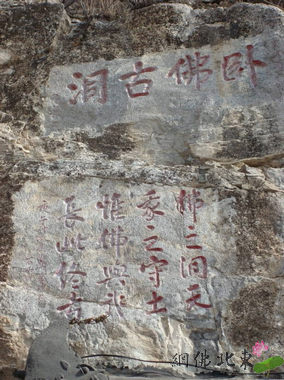 卧佛古洞
佛之洞天
我之守土
惟佛與我
長此終古
東北佛網